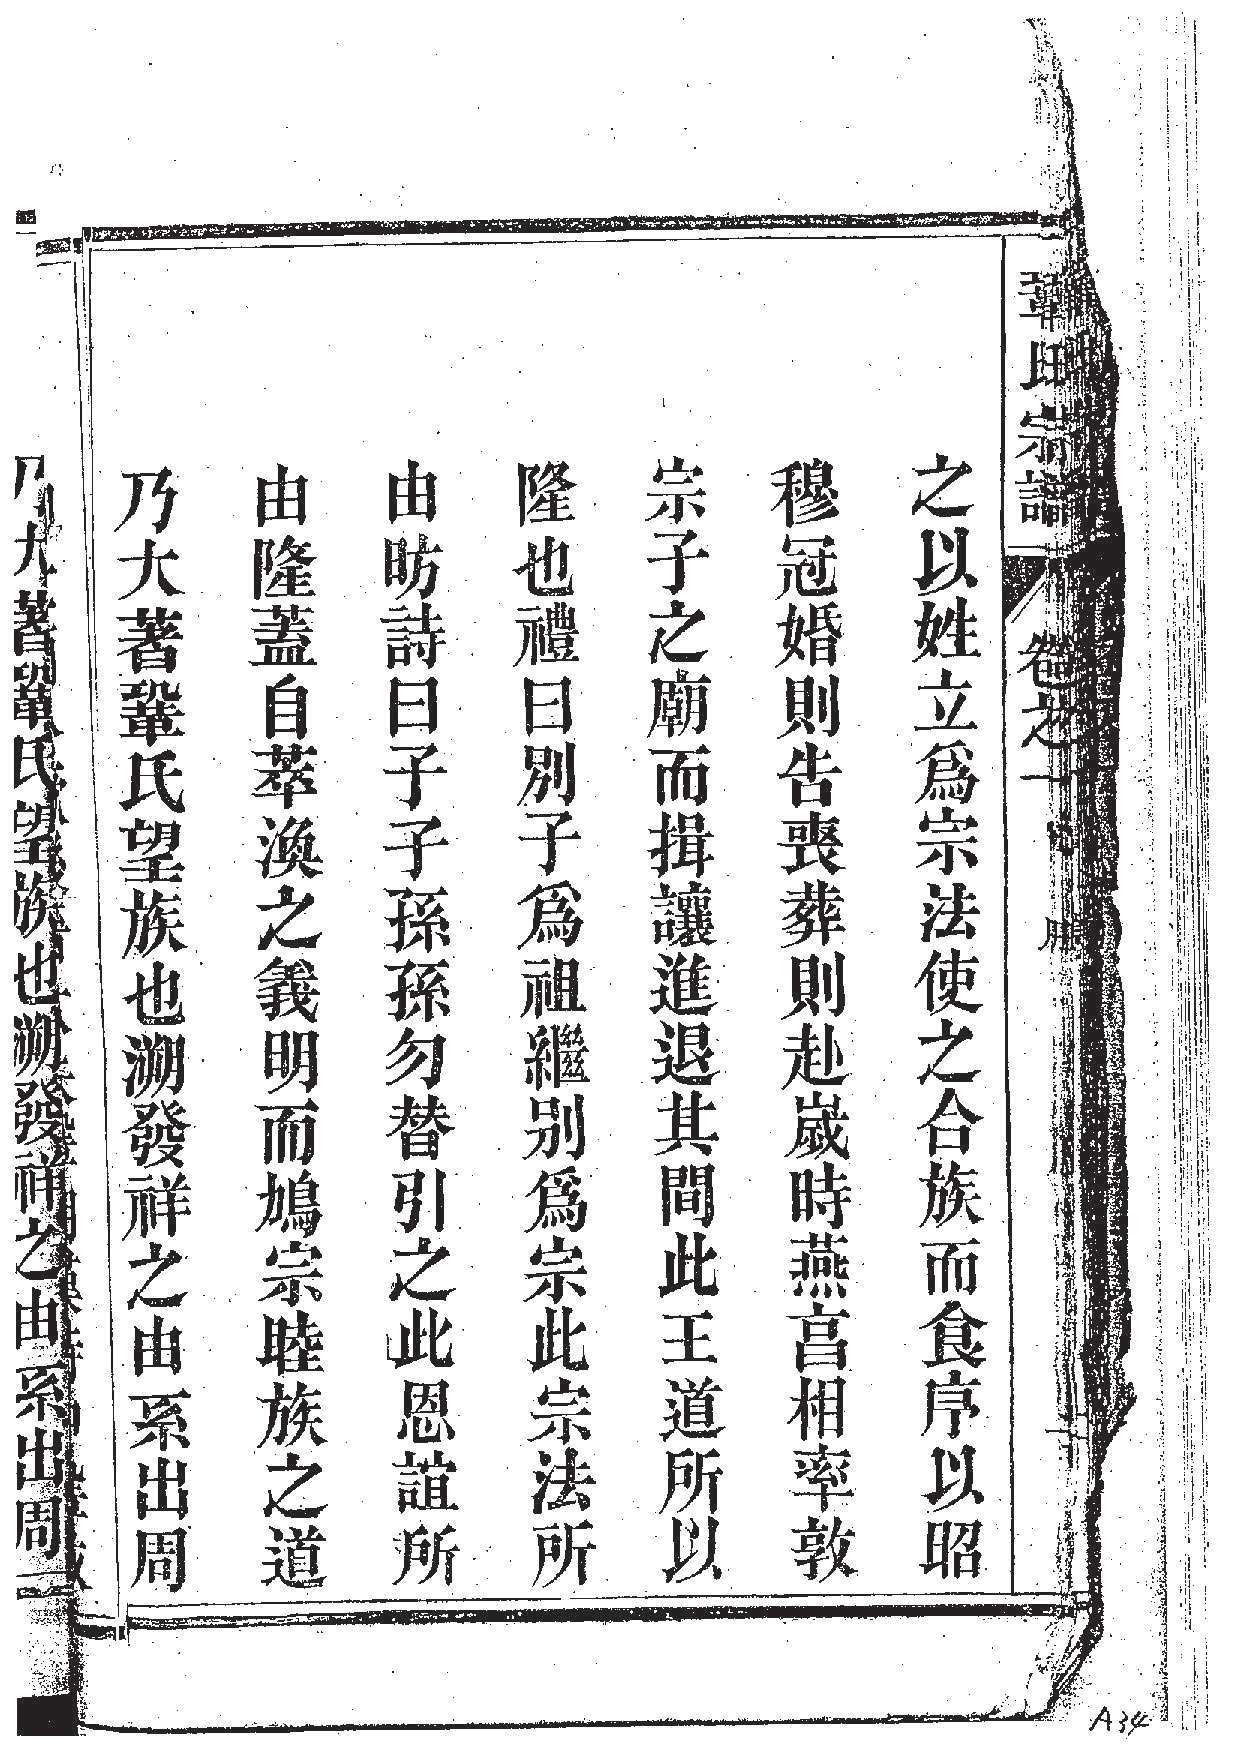 氏宗譜
卷之一
序
之以姓立爲宗法使之合族而食序以昭
穆冠婚則告喪葬則赴歲時燕享相率敦
宗子之廟而揖讓進退其間此王道所以
隆也禮曰別子爲祖繼別爲宗此宗法所
由昉詩曰子子孫孫勿替引之此恩誼所
由隆蓋自萃渙之義明而鳩宗睦族之道
乃大著鞏氏望族也溯發祥之由系出周
乃大著鞏氏望族也溯發祥之由系出周
A34